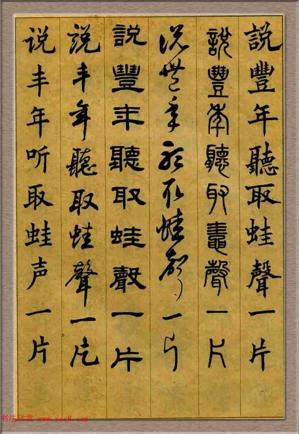 説豐年聽取蛙聲一片
說豐年聽取鼃聲一片
说豐年聽取蛙聲一片
說豐年聽取蛙聲一片
說丰年聽取蛙聲一片
说丰年听取蛙声一片